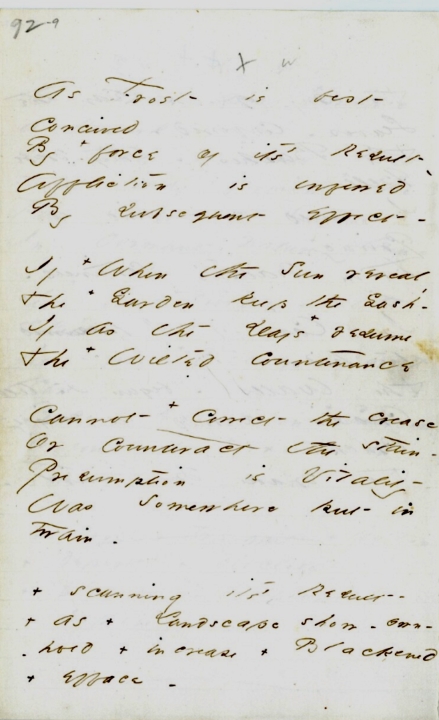 92-9
x w
As Frost is best
conceived
By + force of it's Result -
Affliction is inferred
By subsequent effect -
If + when the Sun reveal,
The + Garden keep the Gash -
If as the Days + resume
The + wilted countenance
Cannot + correct the crease
Or counteract the stain -
Presumption is Vitality
Was somewhere put in
twain.
+ scanning it's Result -
+ as + Landscape show - own -
. hold + increase + Blackened
+ efface -